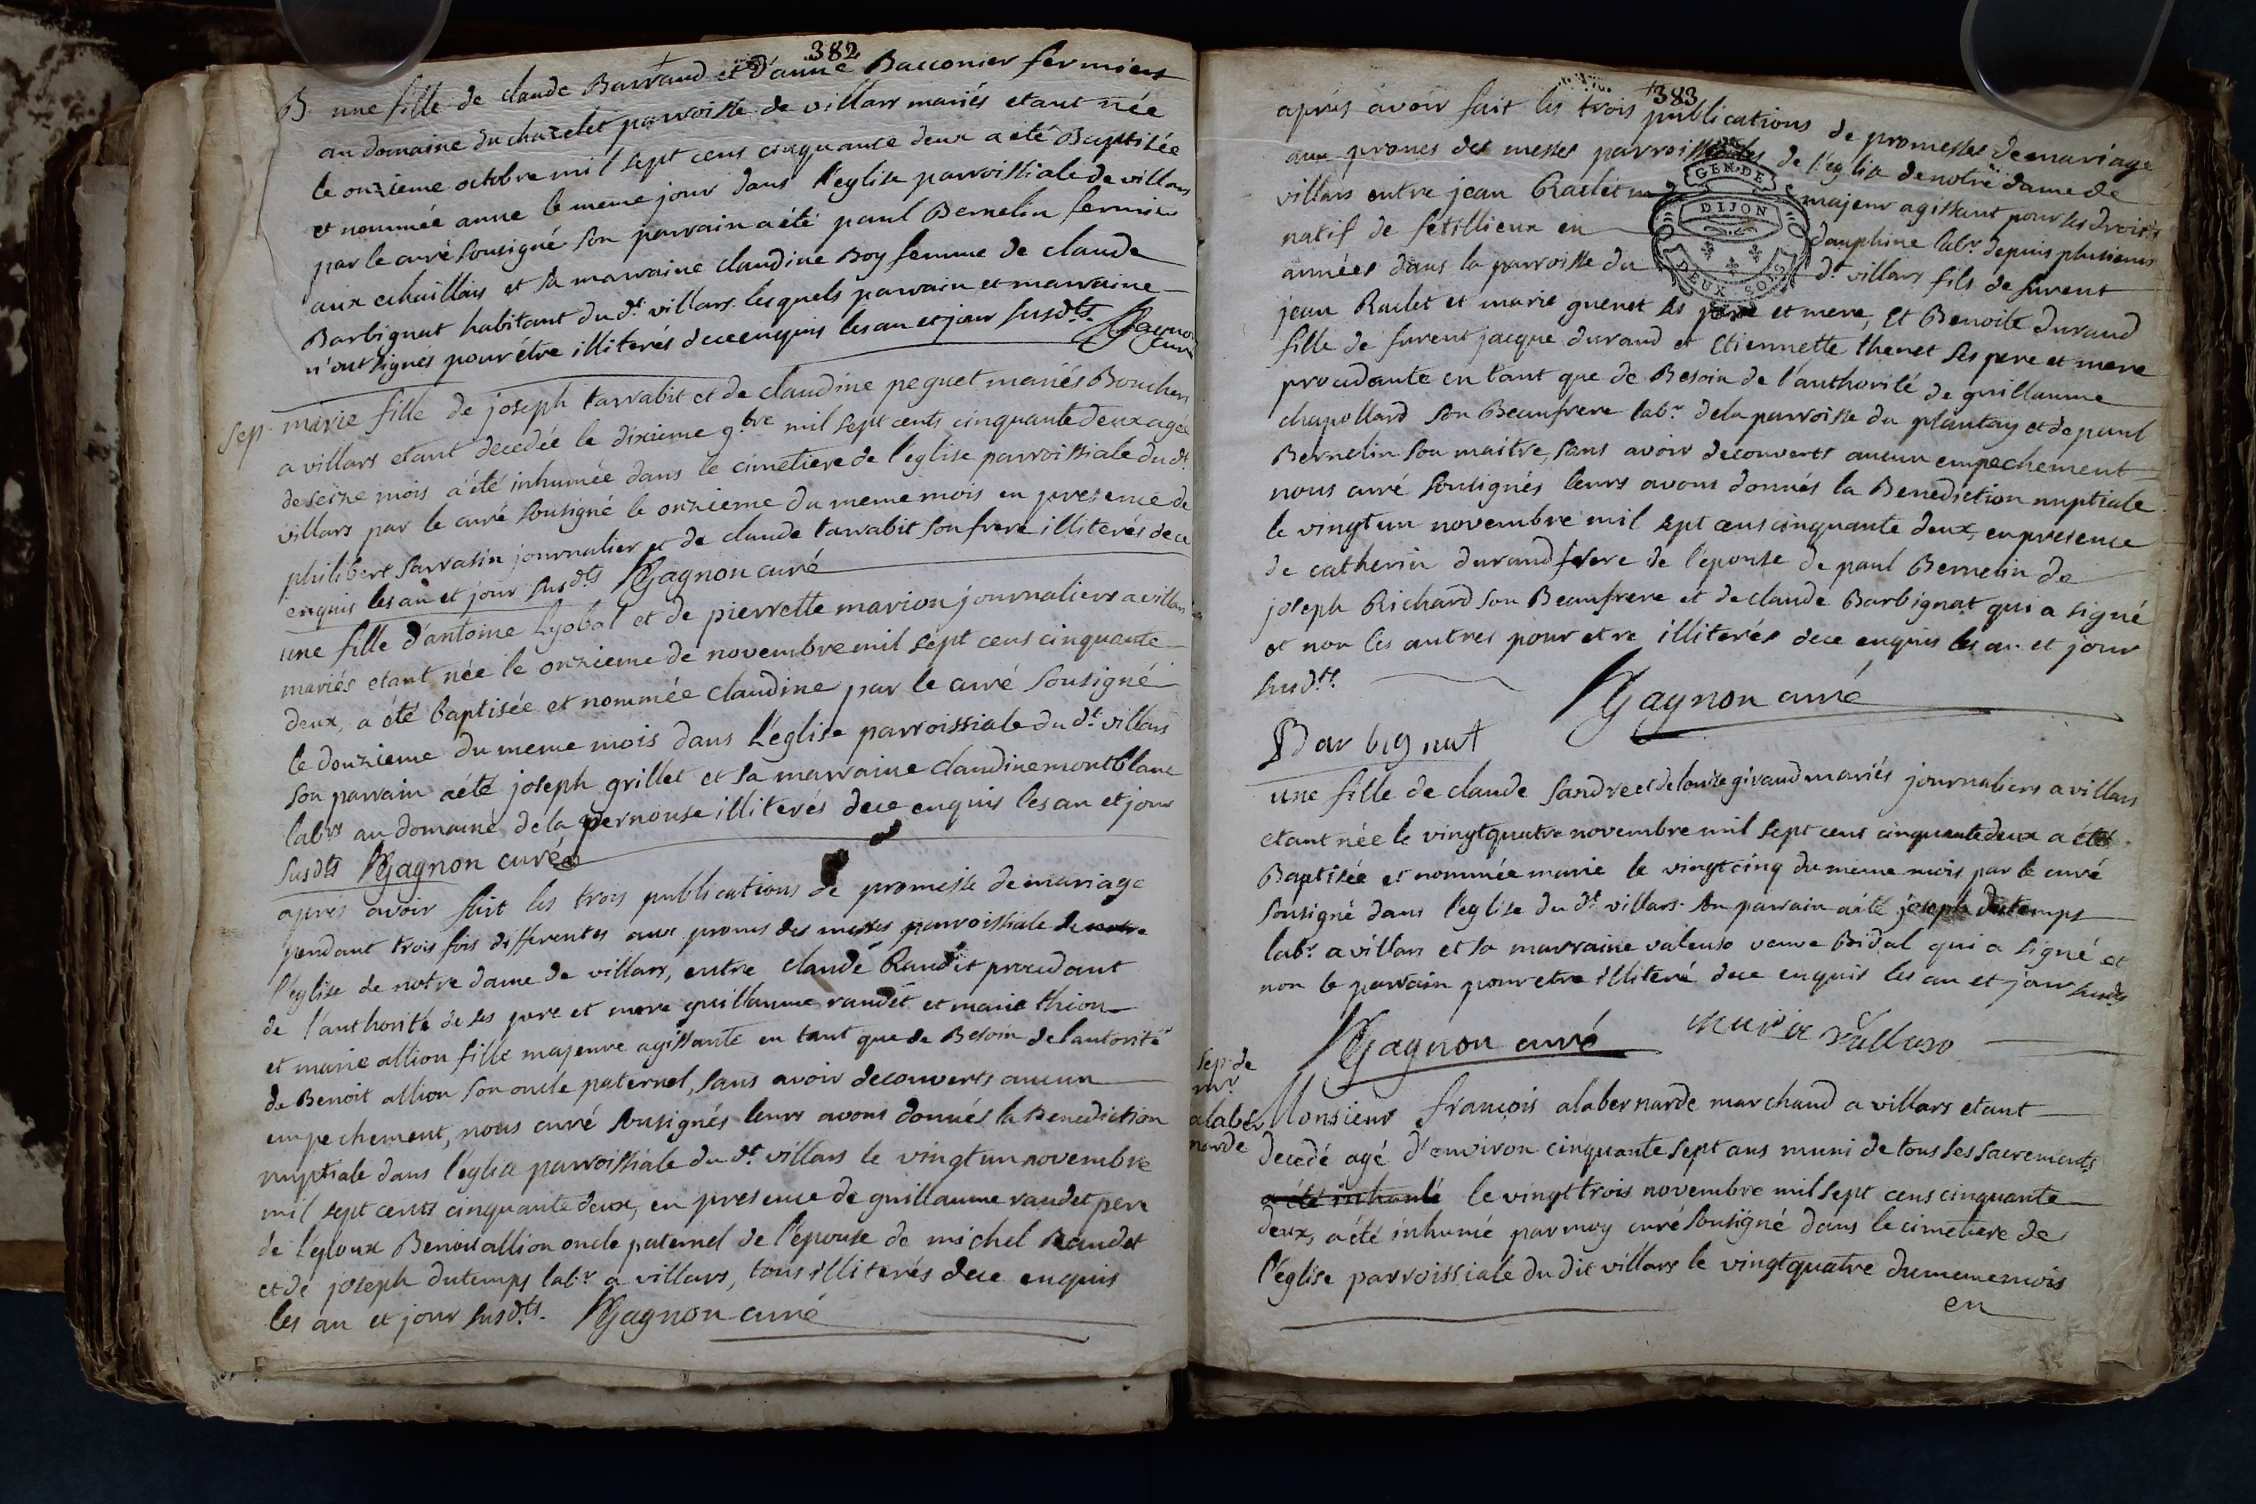 382
B. une fille de claude Barraud et d'anne Bacconier fermiers
au domaine du chatelet parroisse de villars mariés etant née
le onzieme octobre mil sept cens cinquante deux a eté Baptisée
et nommée anne le meme jour dans l'eglise parroissiale de villars
par le curé sousigné son parrain a été paul Bernelin fermier
aux echaillais et sa marraine claudine Boy femme de claude
Barbignat habitant du dt villars lesquels parrain et marraine
n'ont signes pour être illiterés dece enquis les an et jour susdts. Gagnon
curé
sep. marie fille de joseph tarrabit et de claudine peguet mariés Bouchers
a villars etant decedée le dixieme 9bre mil sept cents cinquante deux agée
de seize mois a été inhumée dans le cimetiere de l'eglise parroissiale du dt
villars par le curé sousigné le onzieme du meme mois en presence de
philibert sarrasin journalier et de claude tarrabit son frere illiterés dece
enquis les an et jour susdts Gagnon curé
une fille d'antoine Lyobal et de pierrette marion journaliers a villars
mariés etant née le onzieme de novembre mil sept cens cinquante
deux, a été baptisée et nommée claudine par le curé sousigné
le douzieme du meme mois dans l'église parroissiale du dt villars
son parrain a été joseph grillet et sa marraine claudine montblanc
labrs au domaine de la pernouse illiterés dece enquis les an et jour
susdts Gagnon curé
aprés avoir fait les trois publications de promesse de mariage
pendant trois fois differentes aux prones des messes parroissiale de notre
l'église de notre dame de villars, entre claude Raudet procedant
de l'authorité de ses pere et mere guillaume raudet et marie thion
et marie allion fille majeure agissante en tant que de Besoin de l'autorité
de Benoit allion son oncle paternel, sans avoir decouverts aucun
empechement, nous curé sousignés leurs avons donnés la Benediction
nuptiale dans l'église parroissiale du dt villars le vingt un novembre
mil sept cents cinquante deux, en presence de guillaume raudet pere
de l'epoux Benoit allion oncle paternel de l'épouse de michel Raudet
et de joseph dutemps labr a villars, tous illiterés dece enquis
les an et jour susdts. Gagnon curé
383
aprés avoir fait les trois publications de promesses de mariage
aux prones des messes parroissiales de l'église de notre dame de
villars entre jean Raclet majeur agissant pour ses droits
natif de en dauphine labr depuis plusieurs
années dans la parroisse du dt villars fils de furent
jean Raclet et marie guenet ses pere et mere, et Benoite durand
fille de furent jacque durand et Etiennette thenet ses pere et mere
procedante en tant que de Besoin de l'authorité de guillaume
chapollard son Beaufrere labr de la parroisse du plantay et de paul
Bernelin son maitre, sans avoir decouverts aucun empechement
nous curé sousignés leurs avons donnés la Benediction nuptiale
le vingt un novembre mil sept cens cinquante deux, en presence
de catherin durand frere de l'epouse de paul Bernelin de
joseph Richard son Beaufrere et de claude Barbignat qui a signé
et non les autres pour etre illiterés dece enquis les an et jour
susdts. Gagnon curé
Barbignat
GEN. DE
DIJON
DEUX SOLS
une fille de claude sandre et de louise giraud mariés journaliers a villars
etant née le vingtquatre novembre mil sept cens cinquante deux a été
Baptisée et nommée marie le vingt cinq du meme mois par le curé
sousigné dans l'eglise du dt villars. son parrain a été joseph dutemps
labr a villars et sa marraine valenso veuve Bidal qui a signé et
non le parrain pour etre illiteré dece enquis les an et jour susdts
Gagnon curé
sep. de
mr
alaber
narde
Monsieur françois alabernarde marchand a villars etant
decedé agé d'environ cinquante sept ans muni de tous ses sacrements
a été inhumé le vingt trois novembre mil sept cens cinquante
deux, a été inhumé par moy curé sousigné dans le cimetiere de
l'église parroissiale du dit villars le vingtquatre du meme mois
en